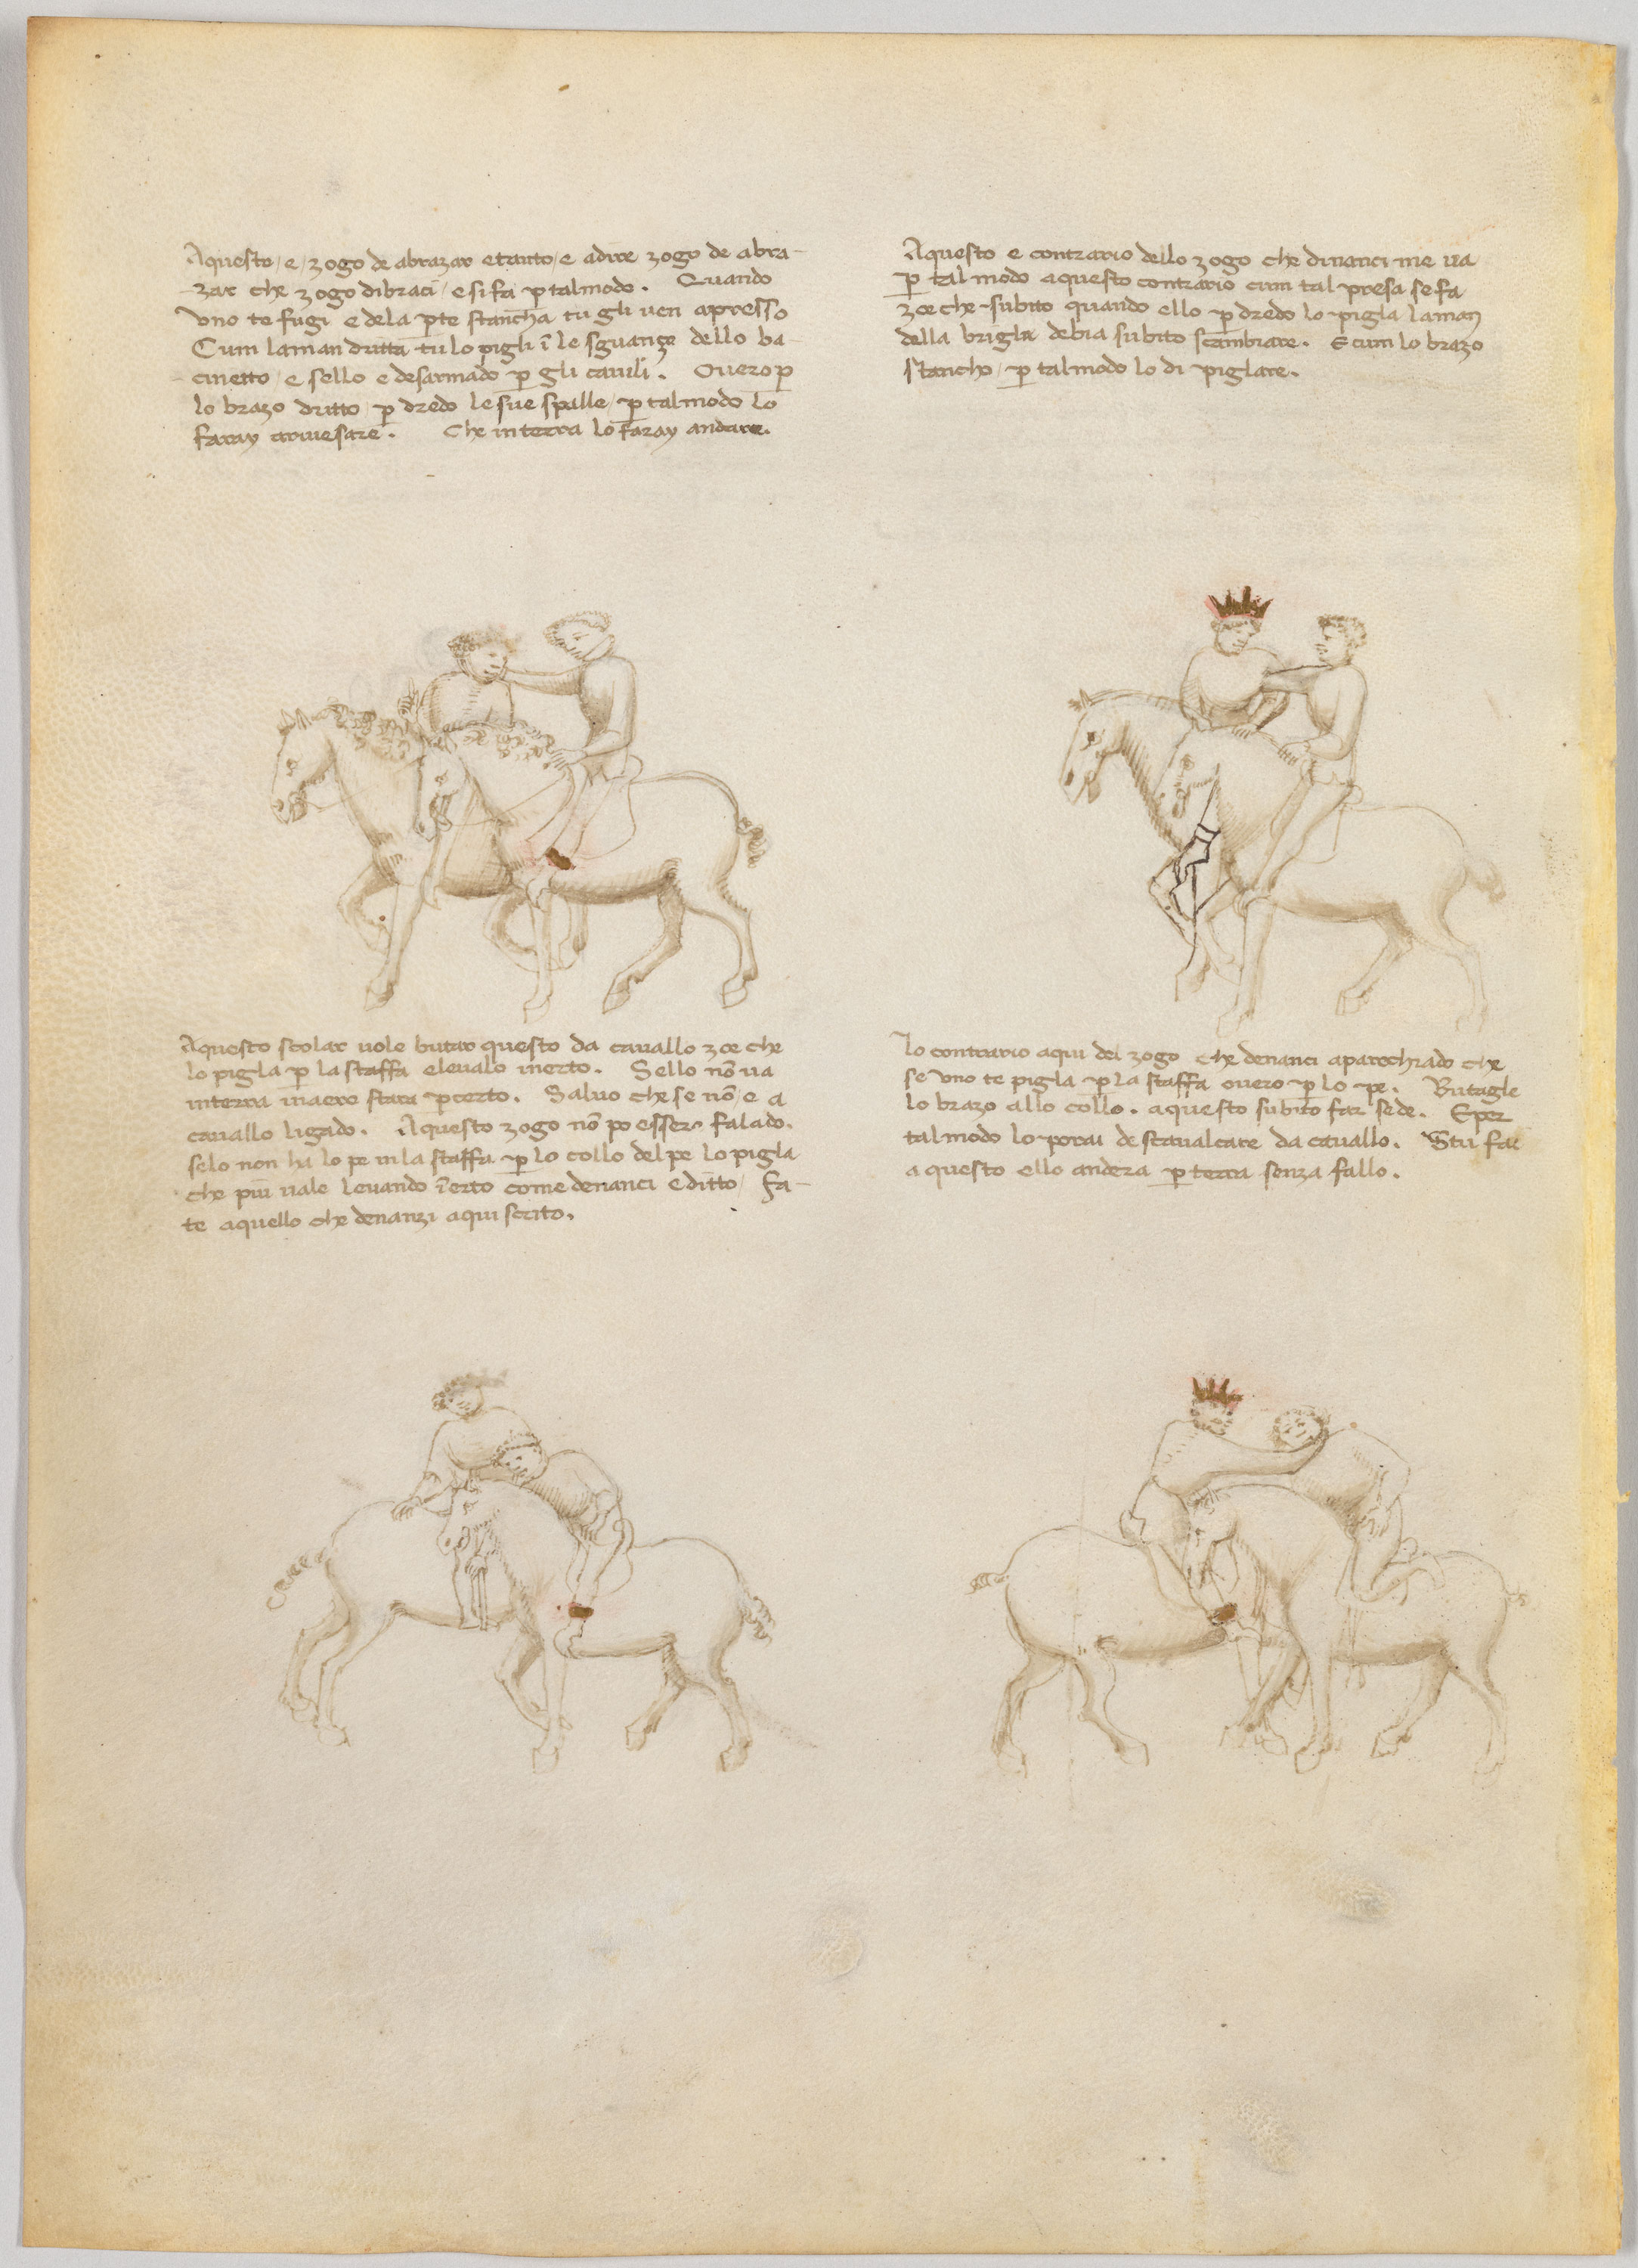 Aquesto / e / zogo de abrazar e tanto / e adire zogo de abra-
zar che zogo di braci / e si fa p̱ tal modo. Quando
uno te fugi e de la p̱te stancha tu gli uen apresso
Cum la man dritta tu lo pigli ī le sguanze dello ba-
cinetto / e s ello e desarmado p̱ gli cauili. Ouero p̱
lo brazo dritto / p̱ dredo le sue spalle / p̱ tal modo lo
faray riuesare. Che in terra lo faray andare.
Aquesto e contrario dello zogo che dinanci me ua
p̱ tal modo aquesto contrario cum tal presa se fa
zoe che subito quando ello p̱ dredo lo pigla la man
della brigla debia subito scambiare. E cum lo brazo
stancho / p̱ tal modo lo di piglare.
Aquesto scolar uole butar questo da cauallo zoe che
lo pigla p̱ la staffa e leualo in erto. S ello nō ua
in terra in aere stara p̱ certo. Saluo che se nō / e a
cauallo ligado. Aquesto zogo nō po essere falado.
se lo non ha lo pe in la staffa p̱ lo collo del pe lo pigla
che più uale leuando ī erto come denanci e ditto / Fa-
te aquello che denanzi aqui scrito.
Io contrario aqui del zogo che denanci aparechiado che
se uno te pigla p̱ la staffa ouero p̱ lo pe. Butagle
lo brazo allo collo. aquesto subito far se de. E per
tal modo lo porai descaualcare da cauallo. S tu fai
a questo ello andera p̱ terra senza fallo.